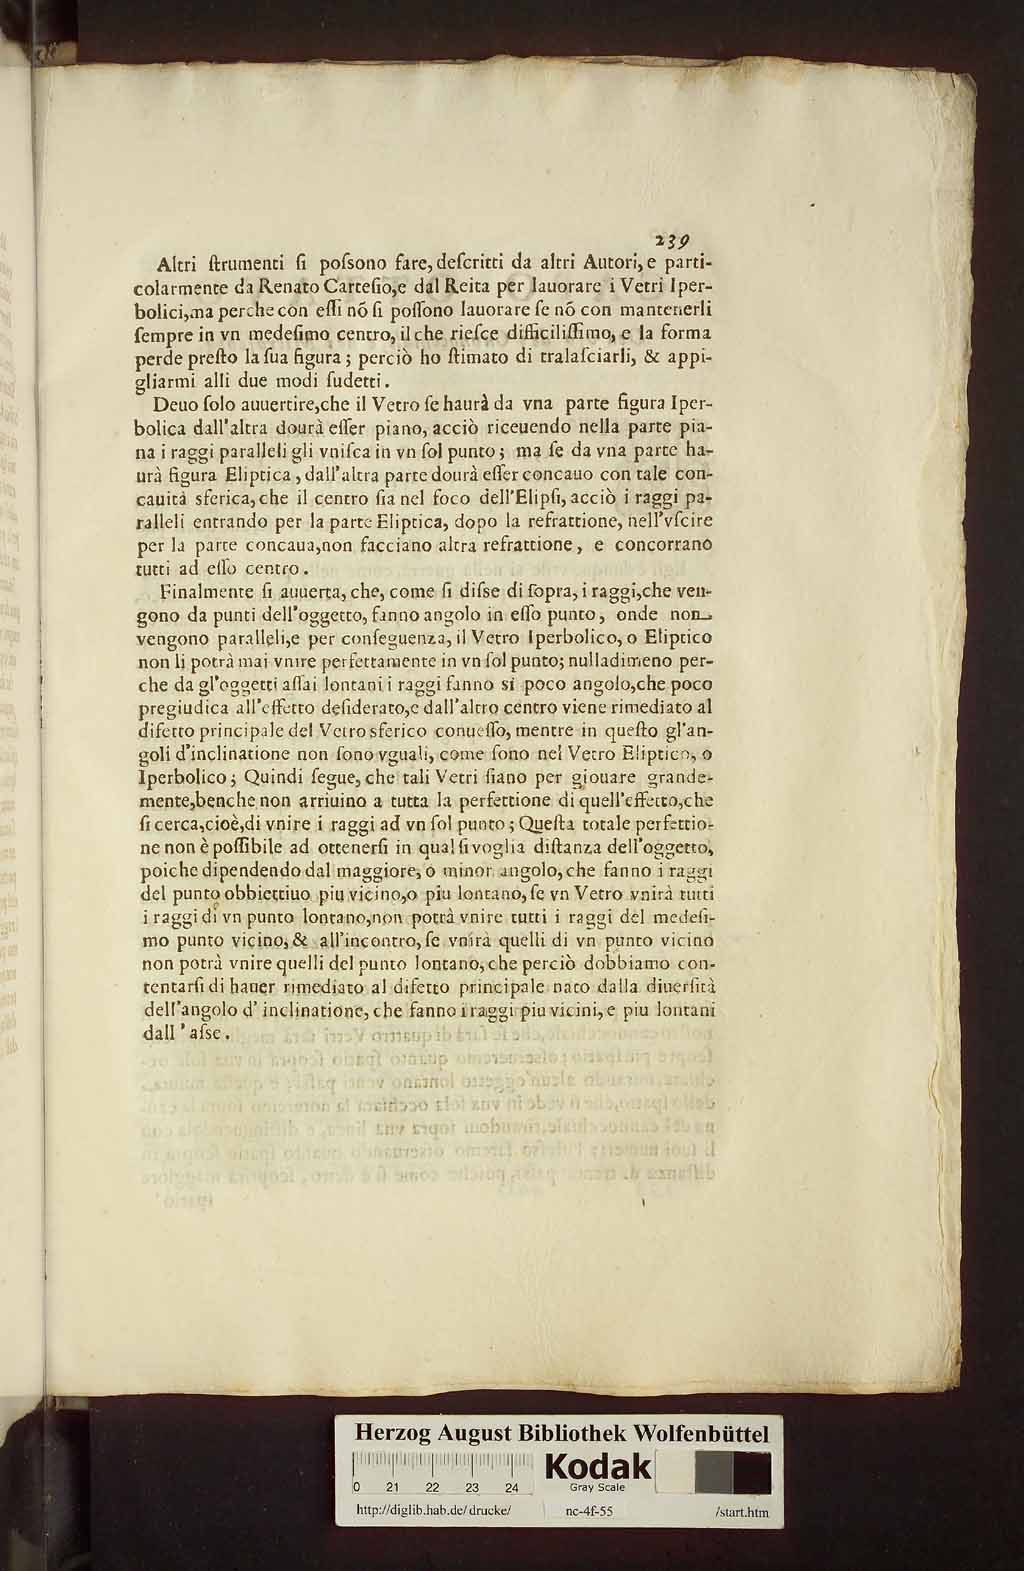 239
Altri ſtrumenti ſi poſsono fare, deſcritti da altri Autori, e parti-
colarmente da Renato Carteſio,e dal Reita per lauorare i Vetri Iper-
bolici,ma perche con eſſi nõ ſi poſſono lauorare ſe nõ con mantenerli
ſempre in vn medeſimo centro, il che rieſce difficiliſſimo, e la forma
perde preſto la ſua figura ; perciò ho ſtimato di tralaſciarli, & appi-
gliarmi alli due modi ſudetti .
Deuo ſolo auuertire,che il Vetro ſe haurà da vna parte figura Iper-
bolica dall'altra dourà eſſer piano, acciò riceuendo nella parte pia-
na i raggi paralleli gli vniſca in vn ſol punto ; ma ſe da vna parte ha-
urà figura Eliptica , dall'altra parte dourà eſſer concauo con tale con-
cauità sferica, che il centro ſia nel foco dell'Elipſi, acciò i raggi pa-
ralleli entrando per la parte Eliptica, dopo la refrattione, nell'vſcire
per la parte concaua,non facciano altra refrattione , e concorrano
tutti ad eſſo centro .
Finalmente ſi auuerta, che, come ſi diſse di ſopra, i raggi,che ven-
gono da punti dell'oggetto, fanno angolo in eſſo punto , onde non
vengono paralleli,e per conſeguenza, il Vetro Iperbolico, o Eliptico
non li potrà mai vnire perfettamente in vn ſol punto; nulladimeno per-
che da gl'oggetti aſſai lontani i raggi fanno sì poco angolo,che poco
pregiudica all'effetto deſiderato,e dall'altro centro viene rimediato al
difetto principale del Vetro sferico conueſſo, mentre in queſto gl'an-
goli d'inclinatione non ſono vguali, come ſono nel Vetro Eliptico, o
Iperbolico ; Quindi ſegue, che tali Vetri ſiano per giouare grande-
mente,benche non arriuino a tutta la perfettione di quell'effetto,che
ſi cerca,cioè,di vnire i raggi ad vn ſol punto ; Queſta totale perfettio-
ne non è poſſibile ad ottenerſi in qual ſi voglia diſtanza dell'oggetto,
poiche dipendendo dal maggiore, o minor angolo, che fanno i raggi
del punto obbiettiuo piu vicino,o piu lontano, ſe vn Vetro vnirà tutti
i raggi di vn punto lontano,non potrà vnire tutti i raggi del medeſi-
mo punto vicino, & all'incontro, ſe vnirà quelli di vn punto vicino
non potrà vnire quelli del punto lontano, che perciò dobbiamo con-
tentarſi di hauer rimediato al difetto principale nato dalla diuerſità
dell'angolo d' inclinatione, che fanno i raggi piu vicini, e piu lontani
dall ' aſse .
Herzog August Bibliothek Wolfenbüttel
0 21 22 23 24
Kodak
Gray Scale
http://diglib.hab.de/drucke/ nc-4f-55 /start.htm